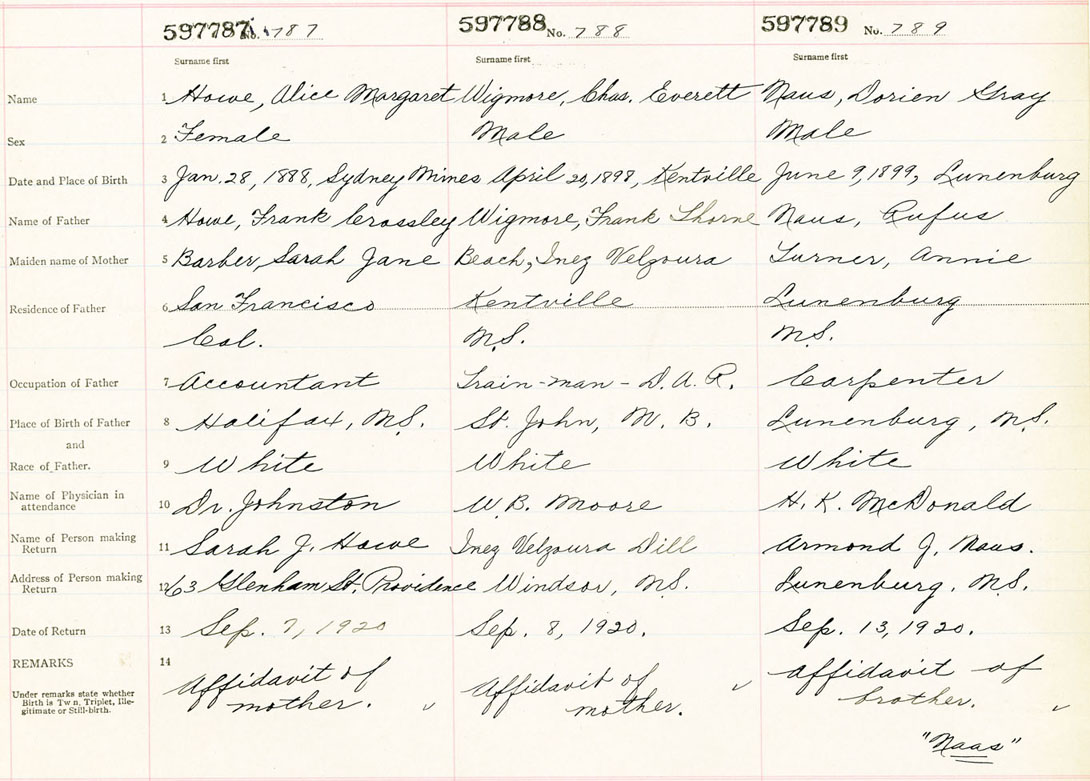 597787 No. 787 597788 No. 788 597789 No. 789
Surname first Surname first Surname first
Name 1 Howe, Alice Margaret Wigmore, Chas. Everett Naus, Dorien Gray
Sex 2 Female Male Male
Date and Place of Birth 3 Jan. 28, 1888, Sydney Mines April 20, 1898, Kentville June 9, 1899, Lunenburg
Name of Father 4 Howe, Frank Crossley Wigmore, Frank Thorne Naus, Rufus
Maiden name of Mother 5 Barber, Sarah Jane Beach, Inez Velzoura Turner, Annie
Residence of Father 6 San Francisco Kentville Lunenburg
Cal. N.S. N.S.
Occupation of Father 7 Accountant Train-man - D.A.R. Carpenter
Place of Birth of Father 8 Halifax, N.S. St. John, N.B. Lunenburg, N.S.
and
Race of Father. 9 White White White
Name of Physician in
attendance 10 Dr. Johnston W.B. Moore H.K. McDonald
Name of Person making
Return 11 Sarah J. Howe Inez Velzoura Dill Armond J. Naus.
Address of Person making
Return 12 63 Glenham St. Providence Windsor, N.S. Lunenburg, N.S.
Date of Return 13 Sep. 7, 1920 Sep. 8, 1920. Sep. 13, 1920.
REMARKS 14
Under remarks state whether
Birth is Twn, Triplet, Ille-
gitimate or Still-birth.
Affidavit of Affidavit of affidavit of
mother. ✓ mother. ✓ brother. ✓
"Naas"